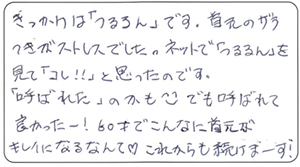 きっかけは「つるるん」です。首元のザラ
つきがストレスでした。ネットで「つるるん」を
見て「コレ!!」と思ったのです。
「呼ばれた」のかも でも呼ばれて
良かったー！60才でこんなに首元が
キレイになるなんて♡ これからも続けまーす！